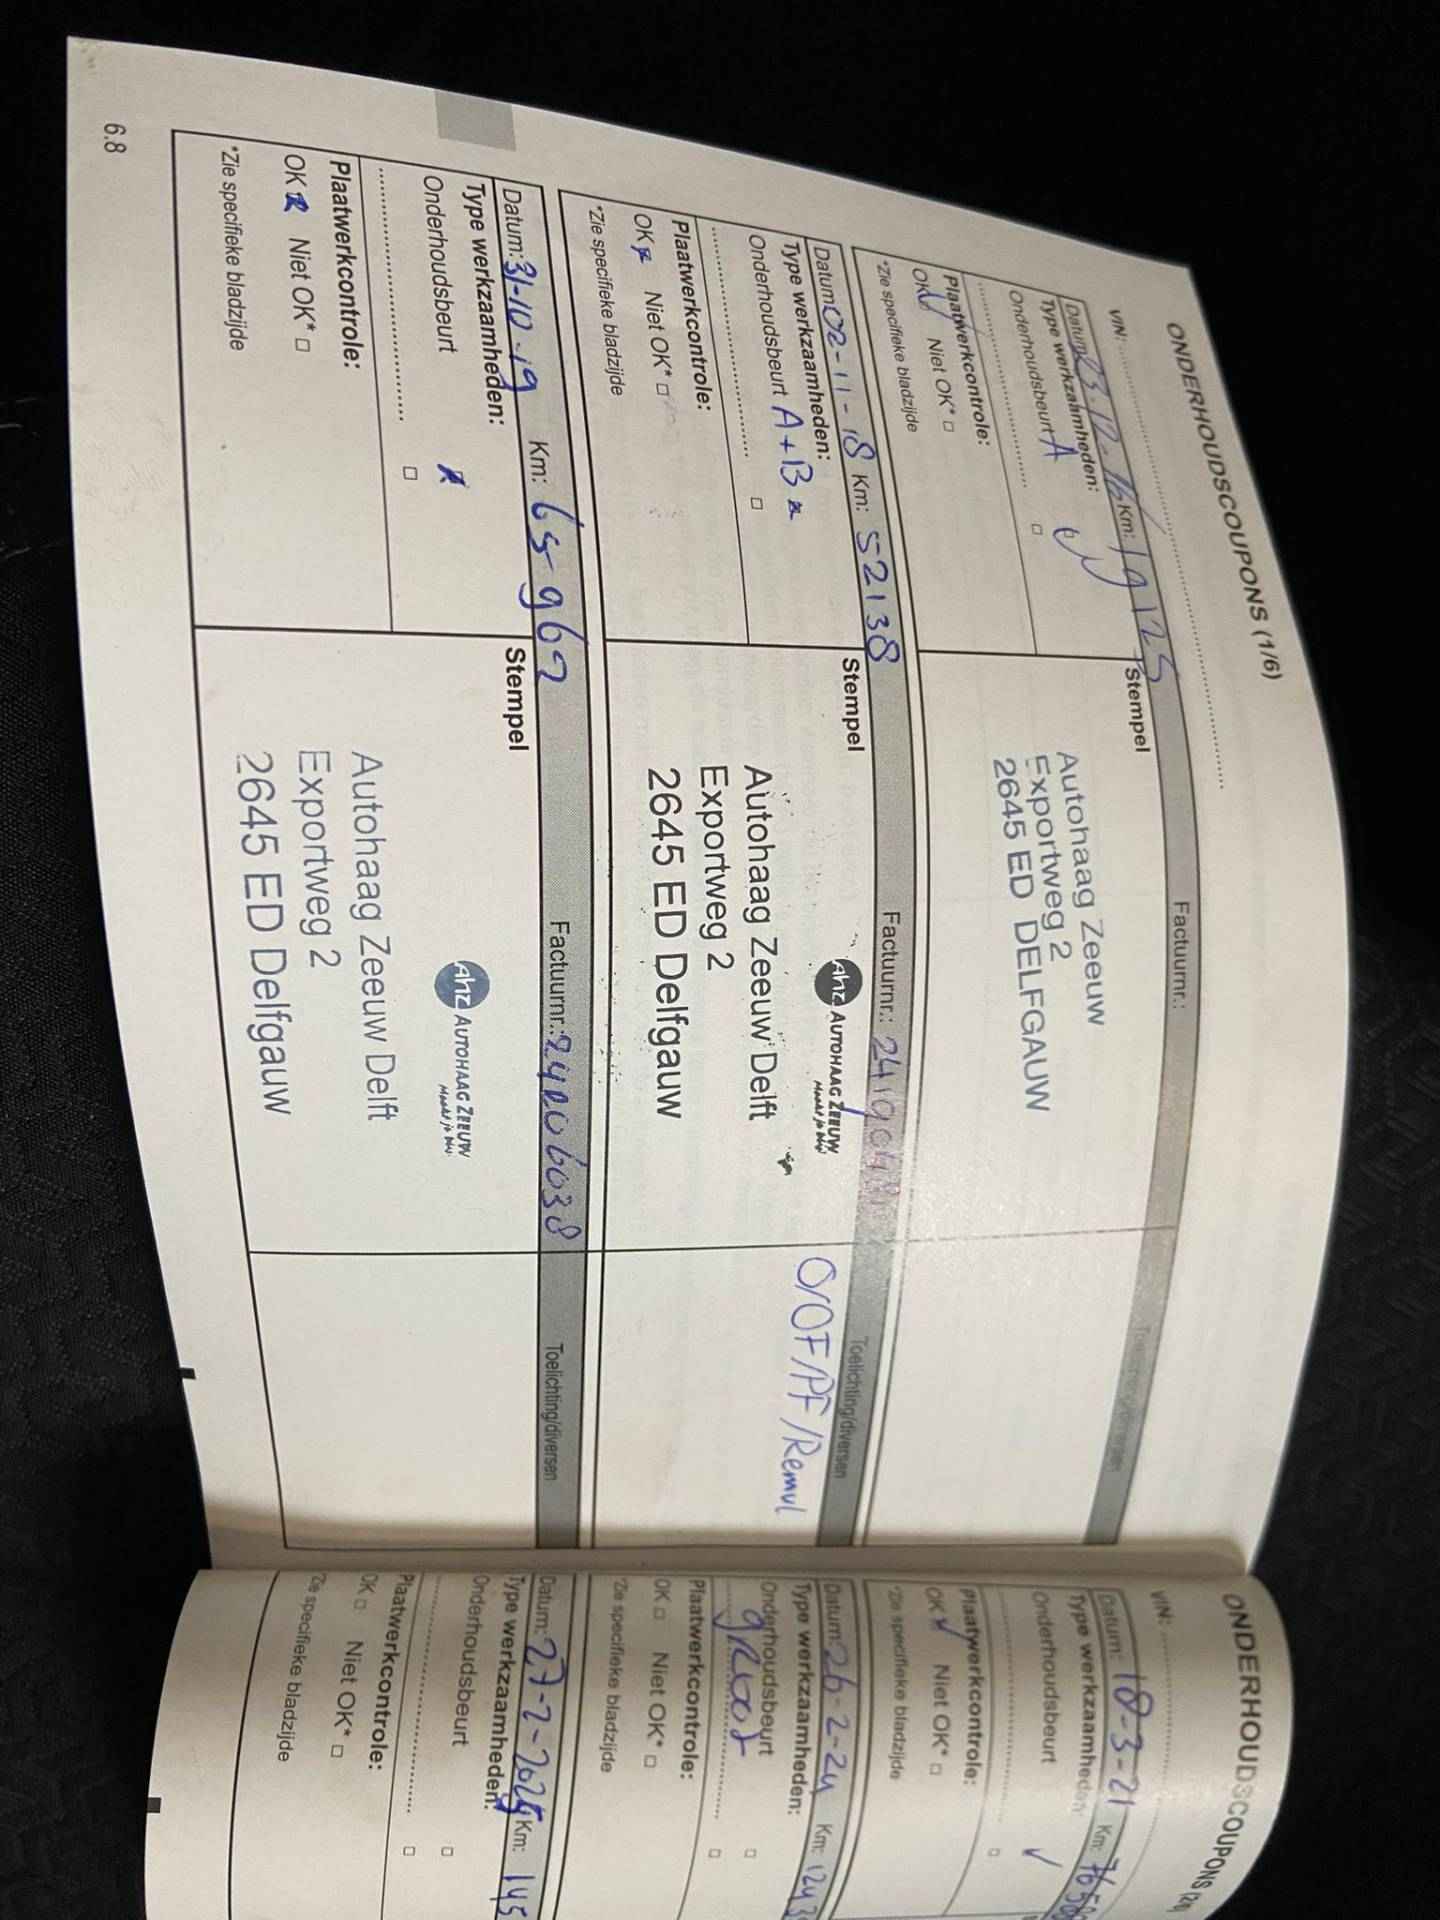 ONDERHOUDSCOUPONS (1/6)
VIN:
Datum: 23-12-16 Km: 19125 Factuurnr.:
Type werkzaamheden: Stempel
Onderhoudsbeurt A
Autohaag Zeeuw
Exportweg 2
2645 ED DELFGAUW
Plaatwerkcontrole:
OK Niet OK*
*Zie specifieke bladzijde
Datum: 02-11-18 Km: 52138 Factuurnr.: Toelichting/diversen
Type werkzaamheden: Stempel
Onderhoudsbeurt A+B
Ahz AUTOHAAG ZEEUW
O/OF/PF/Remvl
Autohaag Zeeuw Delft
Exportweg 2
2645 ED Delfgauw
Plaatwerkcontrole:
OK Niet OK*
*Zie specifieke bladzijde
Datum: 31-10-19 Km: Factuurnr.: Toelichting/diversen
Type werkzaamheden: Stempel
Onderhoudsbeurt
Ahz AUTOHAAG ZEEUW
Autohaag Zeeuw Delft
Exportweg 2
2645 ED Delfgauw
Plaatwerkcontrole:
OK Niet OK*
*Zie specifieke bladzijde
6.8
ONDERHOUDSCOUPONS
VIN:
Datum: 18-3-21 Km:
Type werkzaamheden:
Onderhoudsbeurt
Plaatwerkcontrole:
OK Niet OK*
*Zie specifieke bladzijde
Datum: 26-2-24 Km: 1243
Type werkzaamheden:
Onderhoudsbeurt
groot
Plaatwerkcontrole:
OK Niet OK*
*Zie specifieke bladzijde
Datum: 27-2-2025 Km: 145
Type werkzaamheden:
Onderhoudsbeurt
Plaatwerkcontrole:
OK Niet OK*
*Zie specifieke bladzijde